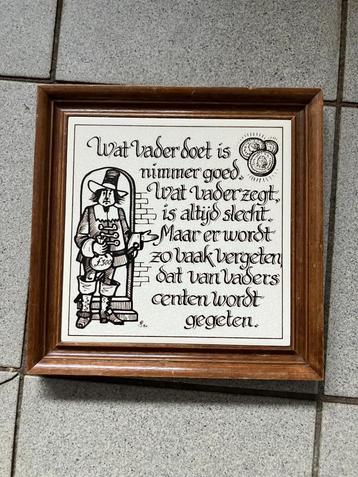 Wat Vader doet is
nimmer goed.
Wat Vader zegt,
is altijd slecht.
Maar er wordt
zo vaak vergeten,
dat van Vaders
centen wordt
gegeten.